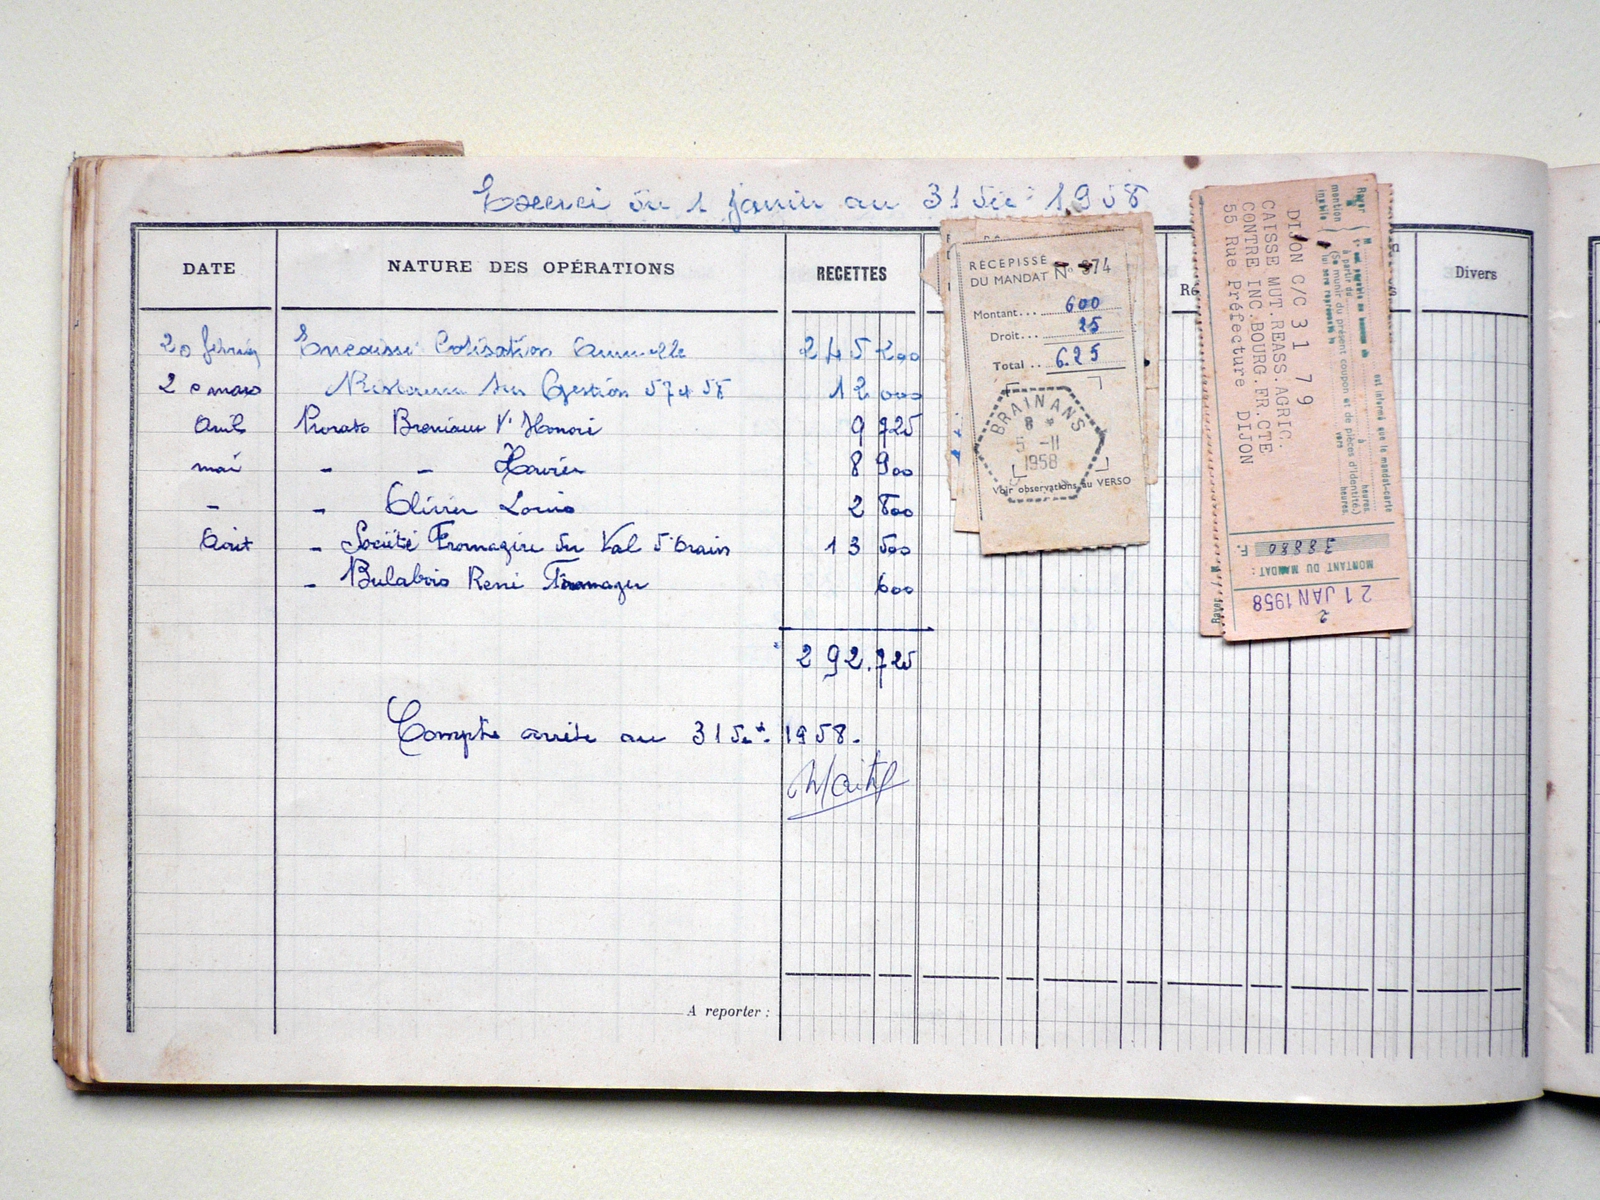 Exercice du 1 janvier au 31 Déc 1958
DATE NATURE DES OPÉRATIONS RECETTES Divers
20 février Encaissé Cotisation Annuelle 245 200
20 mars Ristourne sur Gestion 57 et 58 12 000
Avril Prorata Breniaux Vve Honoré 9 725
mai - - Xavier 8 900
- - Olivier Louis 2 800
Aout - Société Fromagère du Val d'Orain 13 500
- Bulabois René Fromager 600
292.725
Compte arrêté au 31 Déc. 1958.
A reporter :
RÉCEPISSÉ
DU MANDAT No 874
Montant... 600
Droit... 25
Total .. 625
BRAINANS
8 *
5 -11
1958
Voir observations au VERSO
DIJON C/C 31 79
CAISSE MUT.REASS.AGRIC.
CONTRE INC.BOURG.FR.CTE
55 Rue Préfecture DIJON
est informé que le mandat-carte
(Se munir du présent coupon et de pièces d'identité.)
MONTANT DU MANDAT :
F 38880
21 JAN 1958